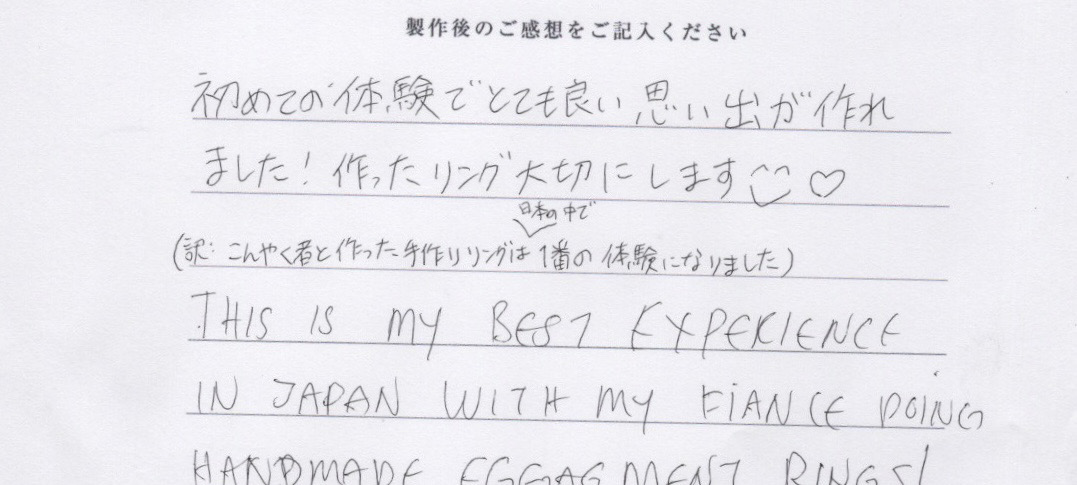 製作後のご感想をご記入ください
初めての体験でとても良い思い出が作れ
ました！作ったリング大切にします♡
日本の中で
(訳：こんやく者と作った手作りリングは1番の体験になりました)
THIS IS MY BEST EXPERIENCE
IN JAPAN WITH MY FIANCE DOING
HANDMADE EGGAGMENT RINGS!